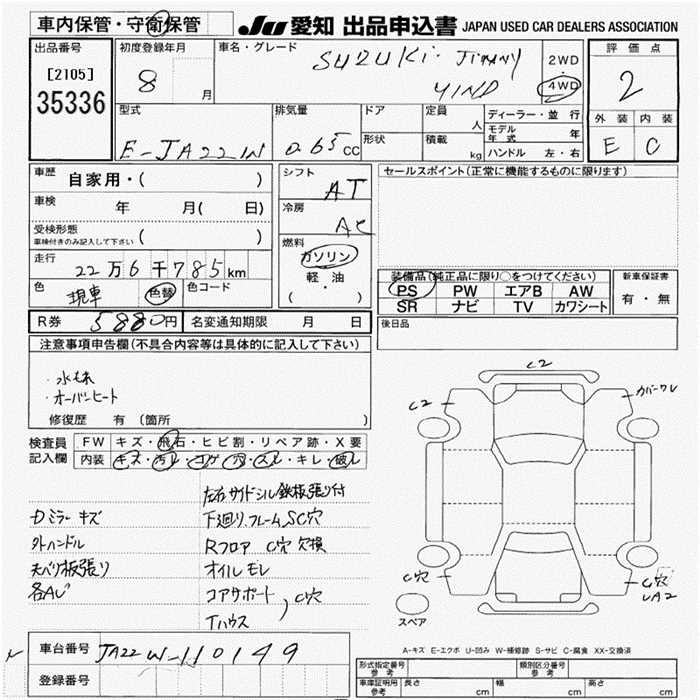 車内保管・守衛保管
JU 愛知 出品申込書 JAPAN USED CAR DEALERS ASSOCIATION
出品番号
[2105]
35336
初度登録年月
8 月
車名・グレード
SUZUKI・Jimny
WIND
2WD
4WD
評価点
2
外装 内装
E C
型式
E-JA22W
排気量
0.65 CC
ドア
形状
定員 人
積載 kg
ディーラー・並行
モデル年式 年
ハンドル 左・右
車歴
自家用・( )
車検
年 月( 日)
受検形態
車検付きのみ記入して下さい ( )
走行
22万6千785km
色
現車
色替
色コード
R券 5880円
名変通知期限 月 日
シフト
AT
冷房
AC
燃料
ガソリン
軽・油
( )
セールスポイント(正常に機能するものに限ります)
装備品(純正品に限り○をつけてください)
PS PW エアB AW
SR ナビ TV カワシート
新車保証書
有・無
後日品
注意事項申告欄(不具合内容等は具体的に記入して下さい)
・水もれ
・オーバーヒート
修復歴 有 (箇所 )
検査員
記入欄
FW キズ・飛石・ヒビ割・リペア跡・X要
内装 キズ・汚レ・コゲ・穴・スレ・キレ・破レ
左右サイドシル鉄板張り付
Dミラーキズ
下廻り、フレームSC穴
外ハンドル
Rフロア C穴 欠損
天ベリ板張り
オイルモレ
各AU
コアサポート
Tハウス
C穴
C2
C2
カバーワレ
C穴
C穴
UA2
スペア
A-キズ E-エクボ U-凹み W-補修跡 S-サビ C-腐食 XX-交換済
車台番号
JA22W-110149
登録番号
形式指定番号
参考
類別区分番号
車庫証明用
参考
長さ cm
幅 cm
高さ cm